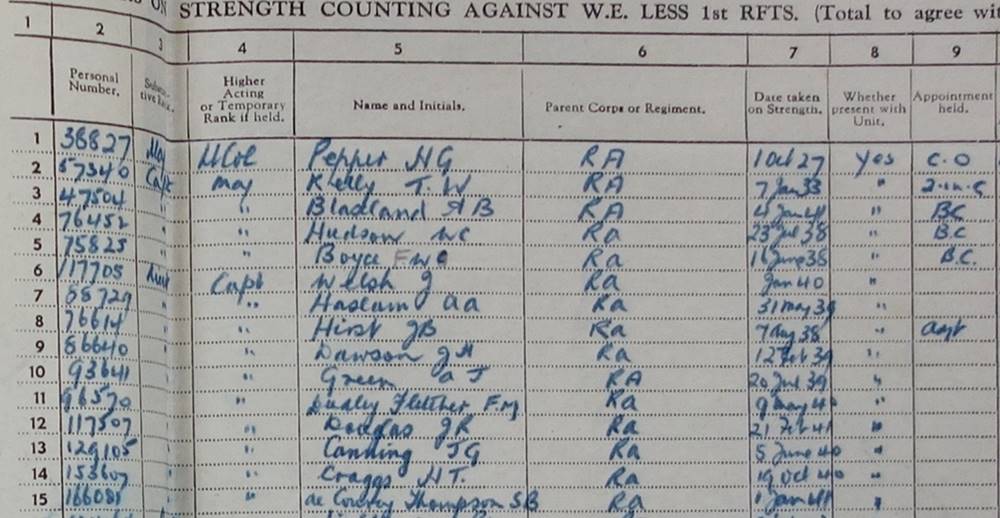 ON STRENGTH COUNTING AGAINST W.E. LESS 1st RFTS. (Total to agree
1 2 3 4 5 6 7 8 9
Personal Number. Higher Acting or Temporary Rank if held. Name and Initials. Parent Corps or Regiment. Date taken on Strength. Whether present with Unit. Appointment held.
1 38827 Maj Pepper HG RA 1 Oct 27 yes C.O
2 57340 Capt may Kielly T.W RA 7 Jan 33 "
3 47504 " " AB RA 4 Jan "
4 76452 " " Hudson WC Ra 23 Jul 38 " B.C
5 75825 " " Boyce FWC Ra 16 June 38 " B.C.
6 117705 Capt Welsh J Ra Jan 40 "
7 " " Haslam aa Ra 31 may 39 "
8 76614 " " Hirst JB Ra 38 "
9 " " Dawson JH Ra 12 Feb 39 "
10 93641 " " Green a J RA 20 Jul 39 "
11 96570 " " Dudley Fletcher F.M Ra 9 may "
12 117507 " Douglas JR Ra 21 Feb 41 "
13 129105 " " Canning JG Ra 5 June 40 "
14 153607 " " Craggs HT. Ra 19 Oct 40 "
15 166081 " " de Courcy Thompson SB Ra 1 Jan 41 "